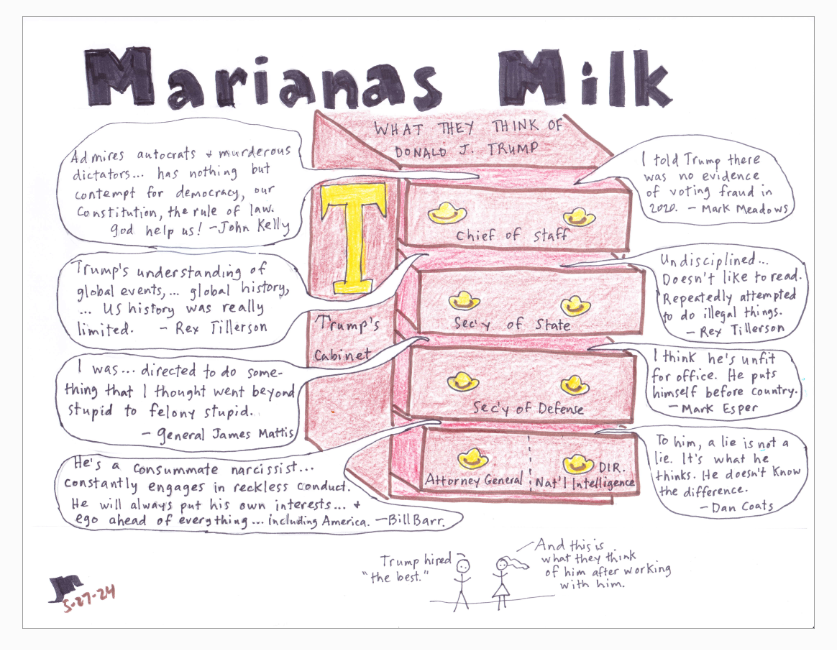 Marianas Milk
WHAT THEY THINK OF
DONALD J. TRUMP
Admires autocrats & murderous
dictators... has nothing but
contempt for democracy, our
Constitution, the rule of law.
God help us! - John Kelly
I told Trump there
was no evidence
of voting fraud in
2020. - Mark Meadows
T
Trump's
Cabinet
Chief of Staff
Trump's understanding of
global events,... global history,
... US history was really
limited. - Rex Tillerson
Undisciplined...
Doesn't like to read.
Repeatedly attempted
to do illegal things.
- Rex Tillerson
Sec'y of State
I was... directed to do some-
thing that I thought went beyond
stupid to felony stupid.
- General James Mattis
I think he's unfit
for office. He puts
himself before country.
- Mark Esper
Sec'y of Defense
He's a consummate narcissist...
constantly engages in reckless conduct.
He will always put his own interests... &
ego ahead of everything... including America. - Bill Barr.
To him, a lie is not a
lie. It's what he
thinks. He doesn't know
the difference.
- Dan Coats
Attorney General
DIR.
Nat'l Intelligence
Trump hired
"the best."
And this is
what they think
of him after working
with him.
5-27-24